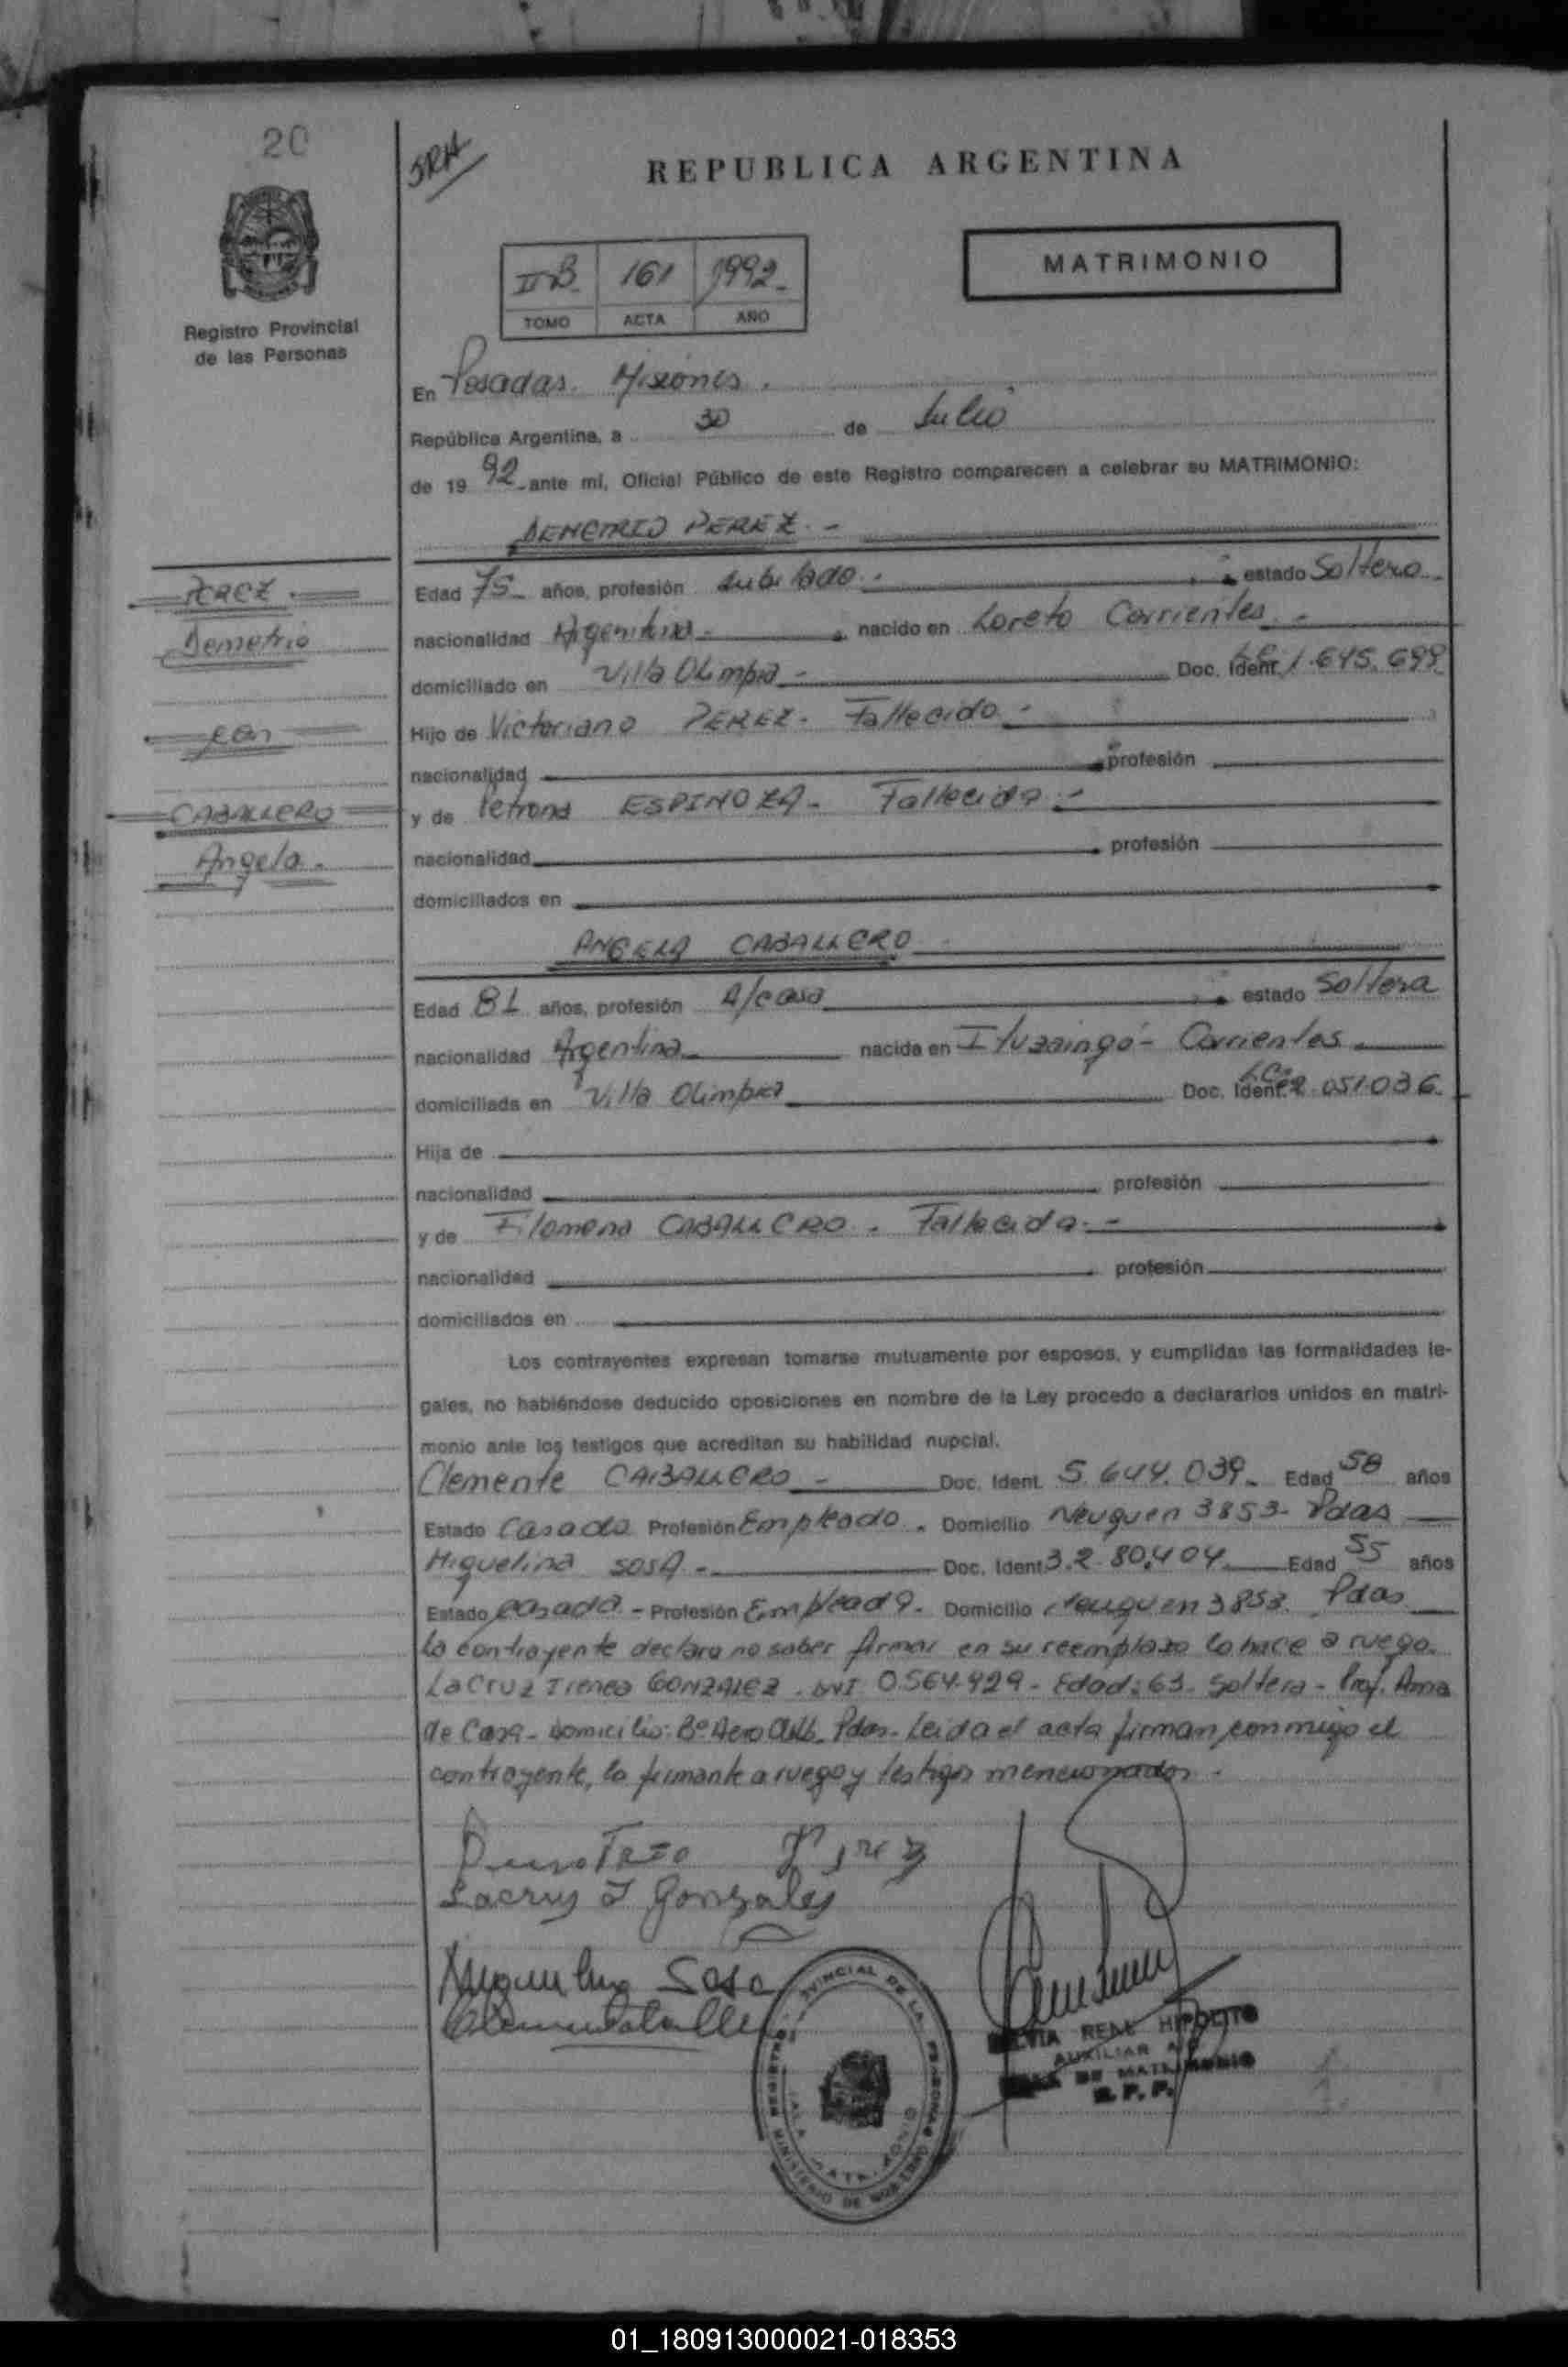 20
SRH
REPUBLICA ARGENTINA
MATRIMONIO
II B. 161 1992.
TOMO ACTA AÑO
Registro Provincial
de las Personas
En Posadas. Misiones.
República Argentina, a 30 de Julio
de 19 92 ante mí, Oficial Público de este Registro comparecen a celebrar su MATRIMONIO:
DEMETRIO PEREZ. -
PEREZ.
Demetrio
con
CABALLERO
Angela.
Edad 75 años, profesión Jubilado. estado Soltero.
nacionalidad Argentina. nacido en Loreto Corrientes. -
domiciliado en Villa Olimpia - Doc. Ident. 1.645.699.
Hijo de Victoriano PEREZ. Fallecido. -
nacionalidad profesión
y de Petrona ESPINOZA - Fallecida. -
nacionalidad profesión
domiciliados en
ANGELA CABALLERO. -
Edad 81 años, profesión A/casa estado Soltera
nacionalidad Argentina nacida en Ituzaingó - Corrientes.
domiciliada en Villa Olimpia Doc. Ident. L.C. 2.051.036.
Hija de
nacionalidad profesión
y de Filomena CABALLERO. Fallecida. -
nacionalidad profesión
domiciliados en
Los contrayentes expresan tomarse mutuamente por esposos, y cumplidas las formalidades le-
gales, no habiéndose deducido oposiciones en nombre de la Ley procedo a declararlos unidos en matri-
monio ante los testigos que acreditan su habilidad nupcial.
Clemente CABALLERO - Doc. Ident. 5.644.039. Edad 58 años
Estado Casado Profesión Empleado. Domicilio Neuquen 3853 - Pdas
Miquelina SOSA - Doc. Ident 3.280.404 Edad 55 años
Estado casada - Profesión Empleada. Domicilio Neuquen 3853. Pdas
La contrayente declara no saber firmar en su reemplazo lo hace a ruego.
LaCruz Irenea GONZALEZ. DNI 0.564.929 - Edad: 63 - Soltera - Prof. Ama
de Casa - Domicilio: Bº Aero Pdas. Leida el acta firman conmigo el
contrayente, la firmante a ruego y testigos mencionados.
Lacruz I Gonzales
Sosa
SILVIA RENE HIPOLITO
AUXILIAR A/C
SALA DE MATRIMONIO
R. P. P.
REGISTRO PROVINCIAL DE LAS PERSONAS
SALA MATRIMONIO
MINISTERIO DE GOBIERNO
01_180913000021-018353